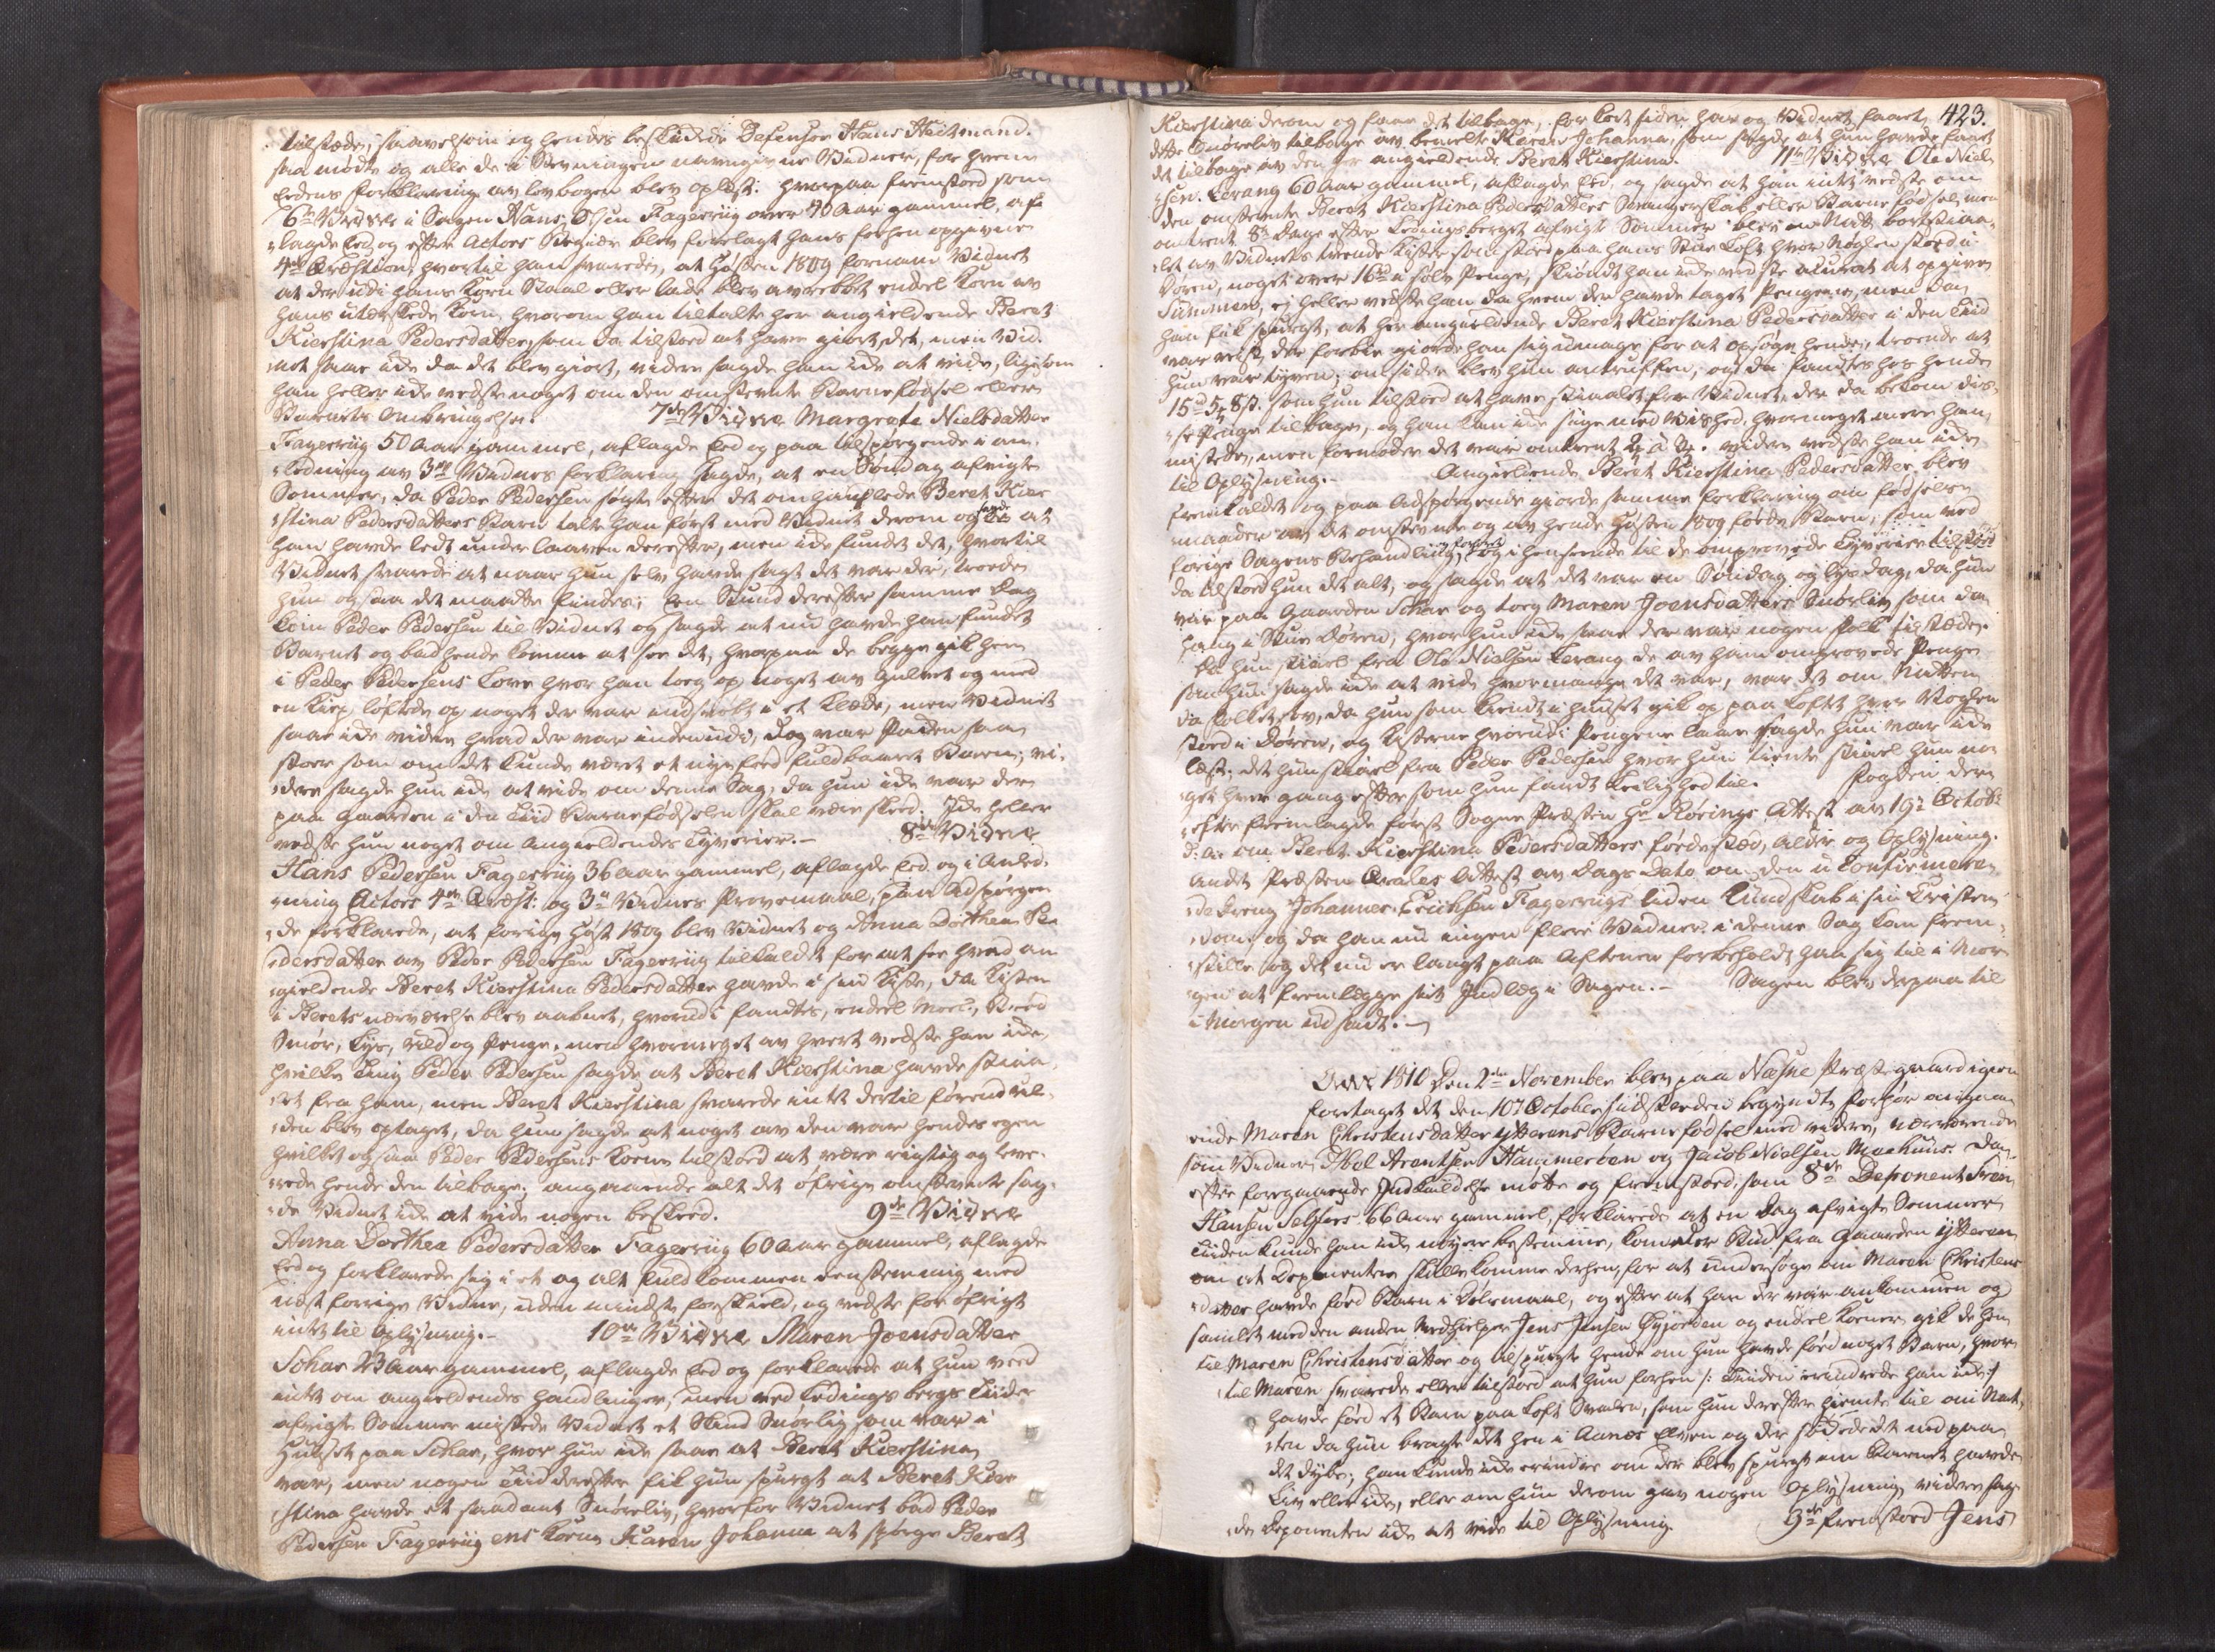 tilstæde, saavelsom og hendes beskikkede Defensor Hans Heitmand.
saa mødte og alle de i Stevningen navngivne Vidner, for hvem
Eedens forklaring av lovbogen blev oplæst: hvorpaa fremstoed som
6te Vidne i Sagen Hans Olsen Fagerviig over 70 Aar gammel, af-
lagde Eed og efter Actors Begiær blev forelagt hans forhen opgivne
4de Qvæstion, hvortil han svarede, at høsten 1809 fornam Vidnet
at der udi hans Korn Staal eller lade blev avrebbet endeel Korn av
hans utærskede Korn, hvorom han tiltalte her angieldende Beret
Kierstina Pedersdatter, som da tilstoed at have giort det, men Vid-
net saae ikke da det blev giort, videre sagde han ikke at vide, ligesom
han heller ikke vedste noget om den omstevnte Barnefødsel eller
Barnets Ombringelse. 7de Vidne Margrete Nielsdatter
Fagerviig 50 Aar gammel, aflagde Eed og paa tilspørgende i an-
ledning av 3die Vidnes forklaring sagde, at en Søndag afvigte
Sommer, da Peder Pedersen søgte efter det omhandlede Beret Kier
stina Pedersdatters Barn talte han først med Vidnet derom og sagde at
han havde ledt under laaven derefter, men ikke fundet det, hvortil
Vidnet svarede at naar hun selv havde sagt det var der, troede
hun ogsaa det maatte findes; Een Stund derefter samme Dag
kom Peder Pedersen til Vidnet og sagde at nu havde han fundet
Barnet og bad hende komme at see det, hvorpaa de begge gik hen
i Peder Pedersens Love hvor han toeg op noget av Gulvet og med
en Kiep løftede op noget der var indsvøbt i et Klæde, men Vidnet
saae ikke videre hvad der var indeni, dog var Pakken saa
stoer som om det kunde været et nyefød fuldbaaret Barn; vi-
dere sagde hun ikke at vide om denne Sag, da hun ikke var der
paa Gaarden i den Tiid Barnefødselen skal være skeed. Ikke heller
vedste hun noget om Angieldendes Tyverier. 8de Vidne
Hans Pedersen Fagerviig 36 Aar gammel, aflagde Eed og i Anled-
ning Actors 4de Qvæst: og 3die Vidnes Provemaal, paa Adspørgen
de forklarede, at forige høst 1809 blev Vidnet og Anna Dorthea Pe
dersdatter av Peder Pedersen Fagerviig tilkaldet for at see hvad an
gieldende Beret Kierstina Pedersdatter havde i sin Kiste, da Kisten
i Berets nærværelse blev aabnet, hvorudi fandtes, endeel Meel, Brød
Smør, Lys, Uld og Penge, men hvormeget av hvert vedste han ikke,
hvilke Ting Peder Pedersen sagde at Beret Kierstina havde stiaa-
let fra ham, men Beret Kierstina svarede intet dertil førend Ul-
den blev optaget, da hun sagde at noget av den var hendes egen
hvilket ogsaa Peder Pedersens Kone tilstoed at være rigtig og leve-
rede hende den tilbage; angaaende alt det øfrige omstevnte sag-
de Vidnet ikke at vide nogen beskeed. 9de Vidne
Anna Dorthea Pedersdatter Fagerviig 60 Aar gammel, aflagde
Eed og forklarede sig i et og alt fuldkommen eenstemmig med
nest forrige Vidne, uden mindste forskield, og vedste for øfrigt
intet til Oplysning. 10de Vidne Maren Joensdatter
Schar 23 Aar gammel, aflagde Eed og forklarede at hun veed
intet om angieldendes handlinger, men ved Ledings bergs Tiider
afvigte Sommer mistede Vidnet et Skind Snørliv som var i
Huuset paa Schar, hvor hun ikke saae at Beret Kierstina
var, men nogen Tiid derefter fik hun spurgt at Beret Kier
stina havde et saadant Snøreliv, hvorfor Vidnet bad Peder
Pedersen Fagerviig ens Kone Karen Johanna at spørge Beret
423.
Kierstina derom og faae det tilbage, for kort siden har og Vidnet faaet
dette Snøreliv tilbage av bemelte Karen Johanna, som sagde at hun havde faaet
det tilbage av den her angieldende Beret Kierstina. 11te Vidne Ole Niel
sen Lerang 60 Aar gammel, aflagde Eed, og sagde at han intet vedste om
den omstevnte Beret Kierstina Pedersdatters Svangerskab eller Barnefødsel, men
omtrent 8te Dage efter Ledingsberget afvigte Sommer blev en Natt bortstiaa-
let av Vidnets tvende Kister som stoed paa hans Stue Loft hvor Nøglen stoed i
Døren, noget over 16 rd i sølv Penge, skiøndt han ikke vedste akurat at opgive
Summen, ej heller vedste han da hvem der havde taget Pengene, men da
han fik spurgt, at her angieldende Beret Kierstina Pedersdatter i den Tiid
var reist der forbie giorde han sig umage for at opsøge hende, troende at
hun var tyven; omsider blev hun antruffen, og da fandtes hos hende
15 rd 5 8 s. som hun tilstoed at have stiaalet fra Vidnet, der da bekom dis-
se Penge tilbage, og han kan ikke sige med Vished, hvormeget mere han
mistede, men formoder det var omtrent 2 a 3. videre vedste han ikke
til Oplysning. Angieldende Beret Kierstina Pedersdatter blev
fremkaldet og paa Adspørgende giorde samme forklaring om fødsels
maaden av det omstevnte og av hende høsten 1809 fødde Barn, som ved
forige Sagens Behandling, og i henseende til de omprovede Tyverier
da tilstoed hun det alt, og sagde at det var en Søndag og lys dag, da hun
var paa Gaarden Schar og toeg Maren Joensdatters Snørliv som da
hang i Stue Døren, hvor hun ikke saae der var nogen folk tilstæde.
Da hun stiaal fra Ole Nielsen Lerang de av ham omprovede Penge
som hun sagde ikke at vide hvormange det var, var det om Natten
da folket sov, da hun som kiendt i huuset gik op paa Loftet hvor Nøglen
stoed i Døren, og Kisterne hvorudi Pengene laae sagde hun var ikke
læst. det hun stiaal fra Peder Pedersen hvor hun tiente stiaal hun no-
get hver gang efter som hun fandt Leilighed til. Fogden der-
efter fremlagde først Sogne Præsten Hr Rørings Attest av 19de Octobr
d: A: om Beret Kierstina Pedersdatters fødested, Alder og Oplysning.
Andet Præsten Qvales Attest av Dags Dato om den u Confirmere-
de dreng Johannes Erichsen Fagervigs liden Kundskab i sin Cristen-
dom, og da han nu ingen flere Vidner i denne Sag kan frem-
stille og det nu er langt paa Aftenen forbeholdt han sig til i Mor-
gen at fremlægge sit Indlæg i Sagen. Sagen blev derpaa til
i Morgen udsadt.
Aar 1810 Den 2den November blev paa Næsne Præstegaard igien
foretaget det den 10de October sidstleden begyndte forhør angaa-
ende Maren Christensdatter Ytterens Barnefødsel med videre, nærværende
som Vidner Abel Arentsen Hammeroen og Jacob Nielsen Maehuus. Da
efter foregaaende Indkaldelse møtte og fremstoed, som 8de Deponent Sven
Hansen Selfors 66 Aar gammel, forklarede at en Dag afvigte Sommer
Tiiden kunde han ikke nøyere bestemme, kom der Bud fra Gaarden Ytteren
om at Deponenten skulle komme derhen, for at undersøge om Maren Christens
datter havde fød Barn i Dølsmaal, og efter at han der var ankommen og
samlet med den anden Medhielper Jens Jensen Øyjorden og endeel Koener, gik de hen
til Maren Christensdatter og tilspurgte hende om hun havde fød noget Barn, hvor-
til Maren svarede eller tilstoed at hun forhen /: Tiiden erindrede han ikke :/
havde fød et Barn paa Loft Svalen, som hun derefter giemte til om Nat-
ten da hun bragte det hen i Aanes Elven og der sødde det ned paa
det dybe; han kunde ikke erindre om der blev spurgt om Barnet havde
Liv eller ikke, eller om hun derom gav nogen Oplysning videre sag-
de Deponenten ikke at vide til Oplysning. 9de fremstoed Jens